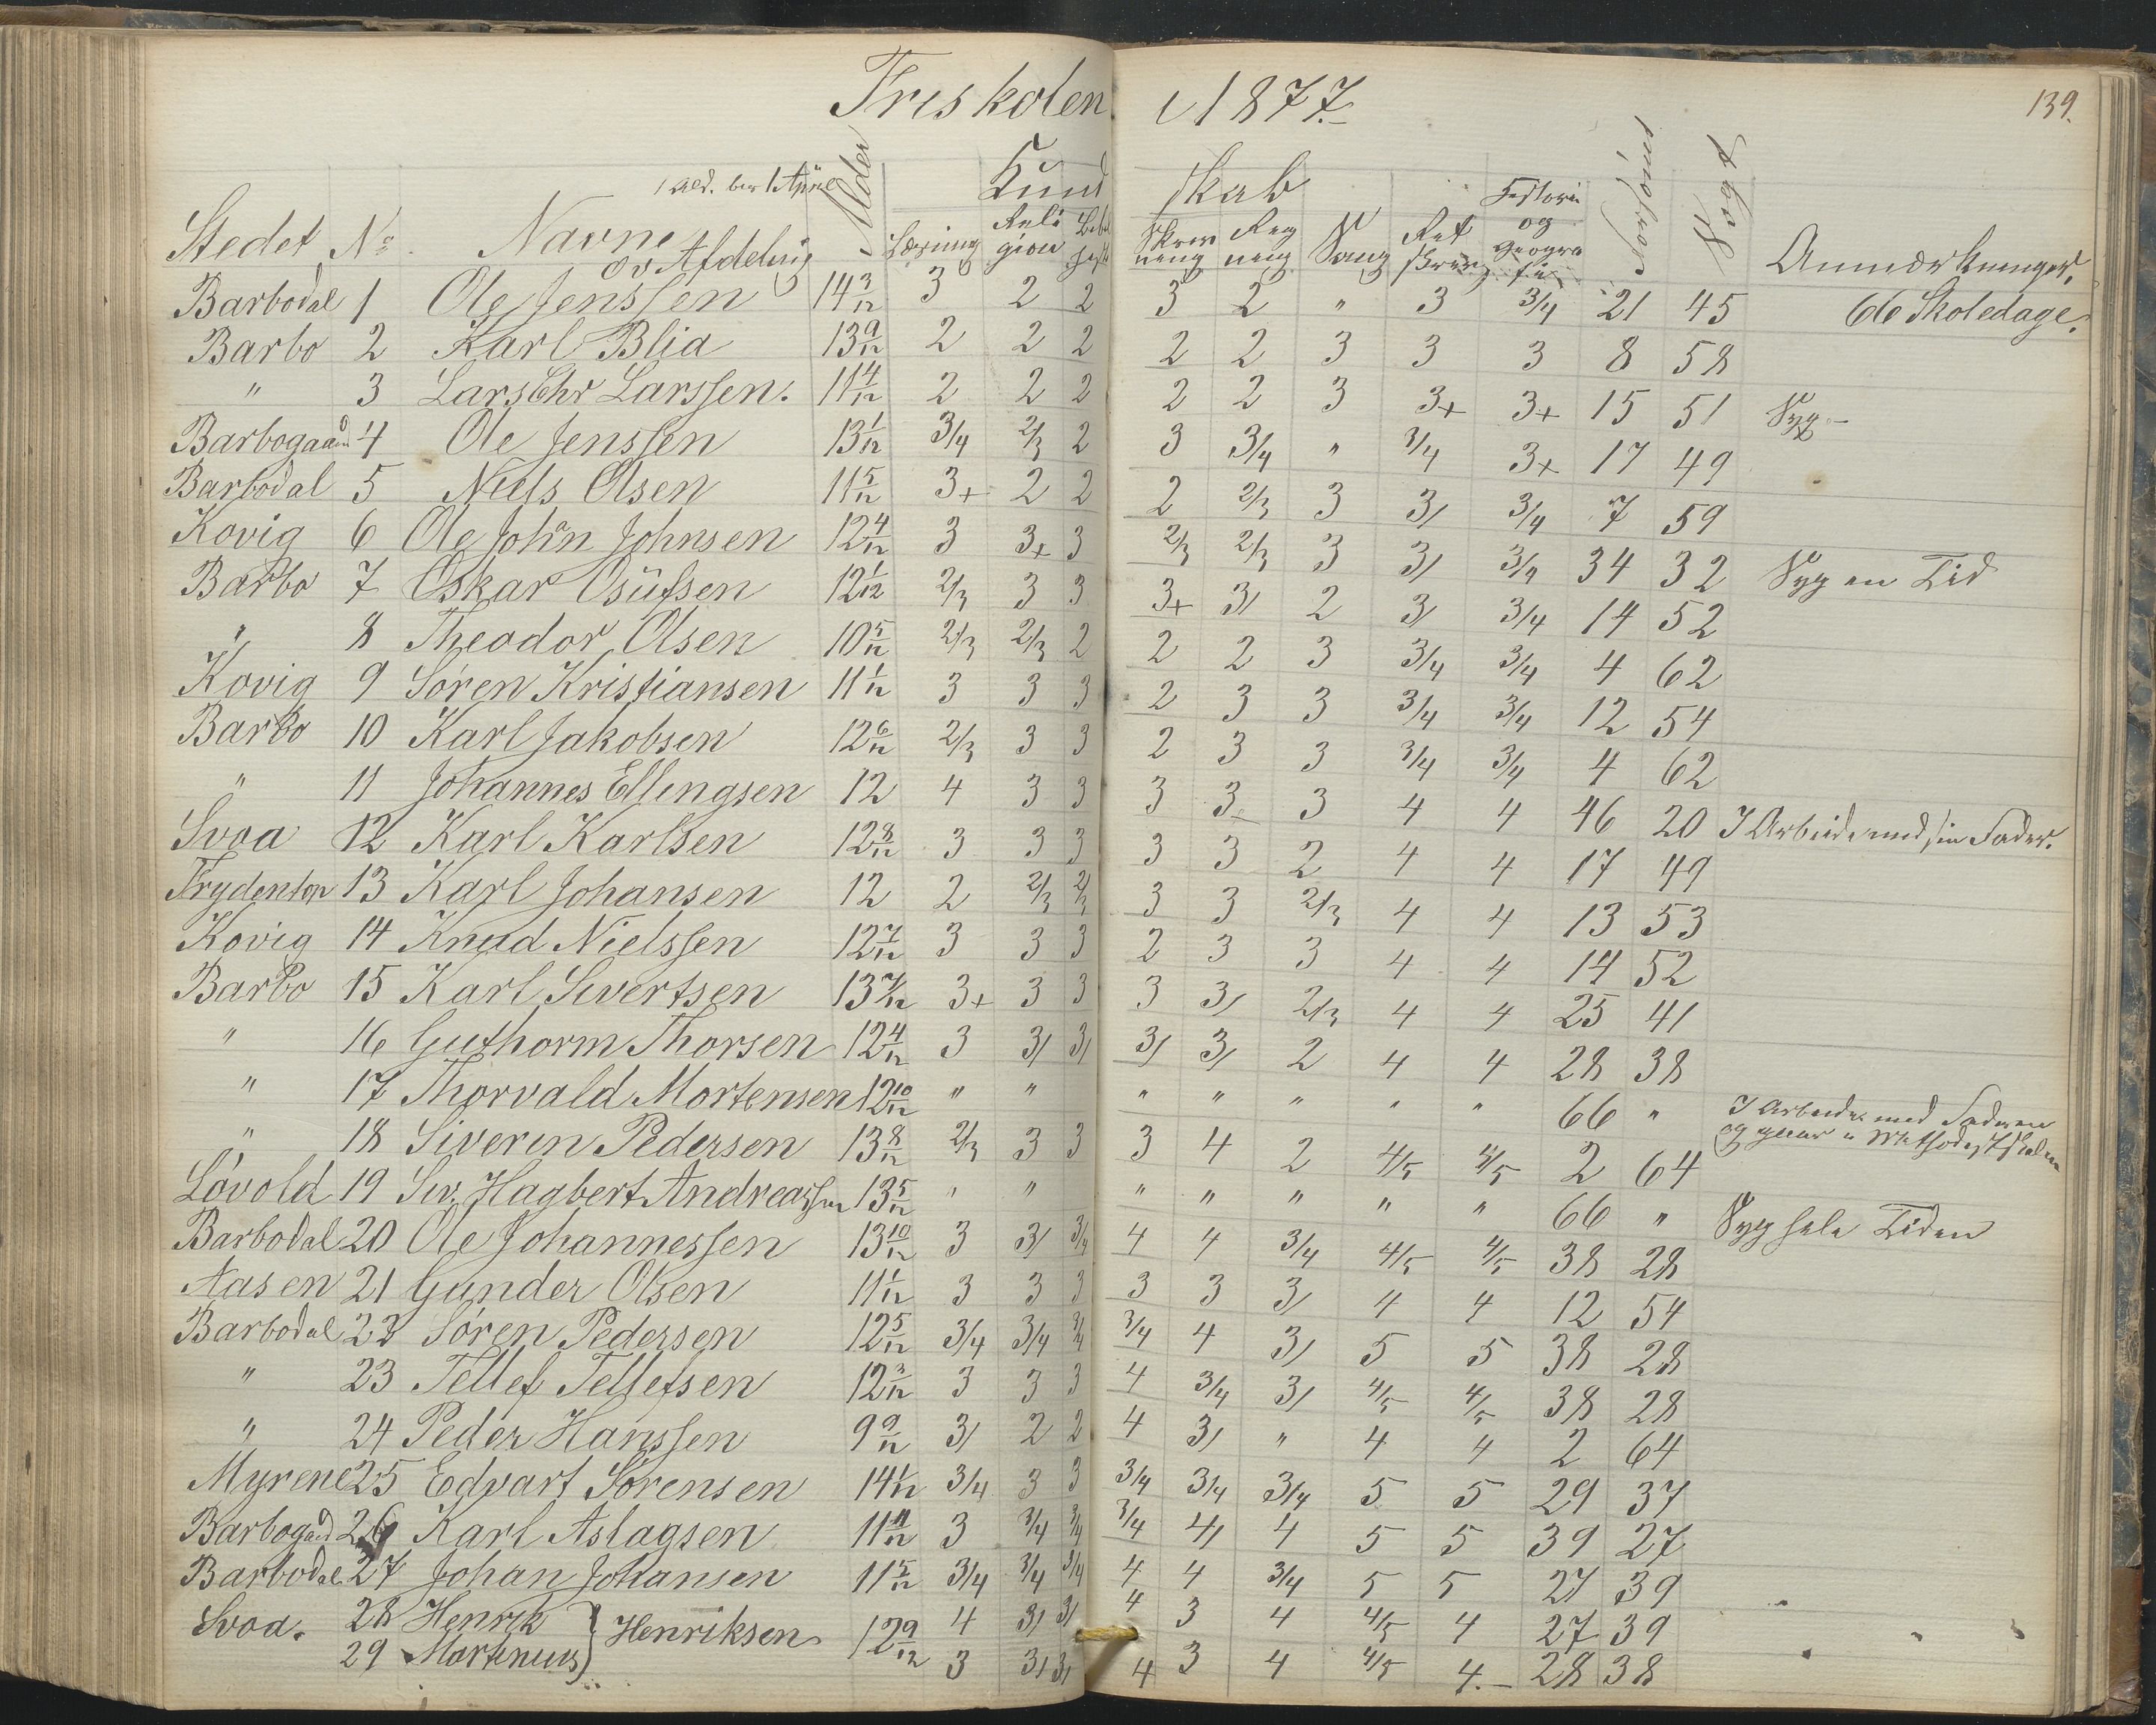 Friskolen i 1877.
139.
Kundskab
Stedet No. Navne ov Afdeling Alder Læsning Religion Skrivning Regning Sang Retskrivn Historie og Geografi Forsömt Sögt Anmærkninger.
Barbodal 1 Ole Jenssen 14 3/12 3 2 2 3 2 " 3 3/4 21 45 66 Skoledage.
Barbo 2 Karl Blia 13 9/12 2 2 2 2 2 3 3 3 8 58
" 3 Lars Chr Larssen. 11 4/12 2 2 2 2 2 3 3+ 3+ 15 51 Syg.-
Barbogaard 4 Ole Jenssen 13 1/12 3/4 2/3 2 3 3/4 " 3/4 3+ 17 49
Barbodal 5 Niels Olsen 11 5/12 3+ 2 2 2 2/3 3 3/ 3/4 7 59
Kovig 6 Ole John Johnsen 12 4/12 3 3+ 3 2/3 2/3 3 3/ 3/4 34 32 Syg en Tid
Barbo 7 Oskar Osüfsen 12 1/12 2/3 3 3 3+ 3/ 2 3/ 3/4 14 52
" 8 Theodor Olsen 10 5/12 2/3 2/3 2 2 2 3 3/4 3/4 4 62
Kovig 9 Sören Kristiansen 11 1/12 3 3 3 2 3 3 3/4 3/4 12 54
Barbo 10 Karl Jakobsen 12 6/12 2/3 3 3 2 3 3 3/4 3/4 4 62
" 11 Johannes Ellingsen 12 4 3 3 3 3- 3 4 4 46 20 I Arbeide med sin Fader.
Svoa 12 Karl Karlsen 12 8/12 3 3 3 3 3 2 4 4 17 49
Frydenlon 13 Karl Johansen 12 2 2/3 2/3 3 3 2/3 4 4 13 53
Kovig 14 Knud Nielssen 12 7/12 3 3 3 2 3 3 4 4 14 52
Barbo 15 Karl Sivertsen 13 7/12 3+ 3 3 3 3/ 2/3 4 4 25 41
" 16 Guthorm Thorsen 12 4/12 3 3/ 3/ 3/ 3/ 2 4 4 28 38
" 17 Thorvald Mortensen 12 10/12 " " " " " " " 66 " I Arbeide med Faderen
og gaar i Methodistskolen
" 18 Siverin Pedersen 13 8/12 2/3 3 3 3 4 2 4/5 4/5 2 64
Lövold 19 Siv. Hagbert Andreassen 13 5/12 " " " " " " " 66 " Syg hele Tiden
Barbodal 20 Ole Johannessen 13 10/12 3 3/ 3/4 4 4 3/4 4/5 4/5 38 28
Aasen 21 Gunder Olsen 11 1/12 3 3 3 3 3 3/ 4 4 12 54
Barbodal 22 Sören Pedersen 12 5/12 3/4 3/4 3/4 3/4 4 3/ 5 5 38 28
" 23 Tellef Tellefsen 12 3/12 3 3 3 4 3/4 3/ 4/5 4/5 38 28
" 24 Peder Hanssen 9 9/12 3/ 2 2 4 3/ " 4 4 2 64
Myrene 25 Edvart Sörensen 14 1/12 3/4 3 3 3/4 3/4 3/4 5 5 29 37
Barbogaard 26 Karl Aslagsen 11 11/12 3 3/4 3/4 3/4 4/ 4 5 5 39 27
Barbodal 27 Johan Johansen 11 5/12 3/4 3/4 3/4 4 4 3/4 5 5 27 39
Svoa. 28 Henrik } Henriksen 12 9/12 4 3/ 3/ 4 3 4 4/5 4 27 39
29 Martinus 3 3/ 3/ 4 3 4 4/5 4.- 28 38